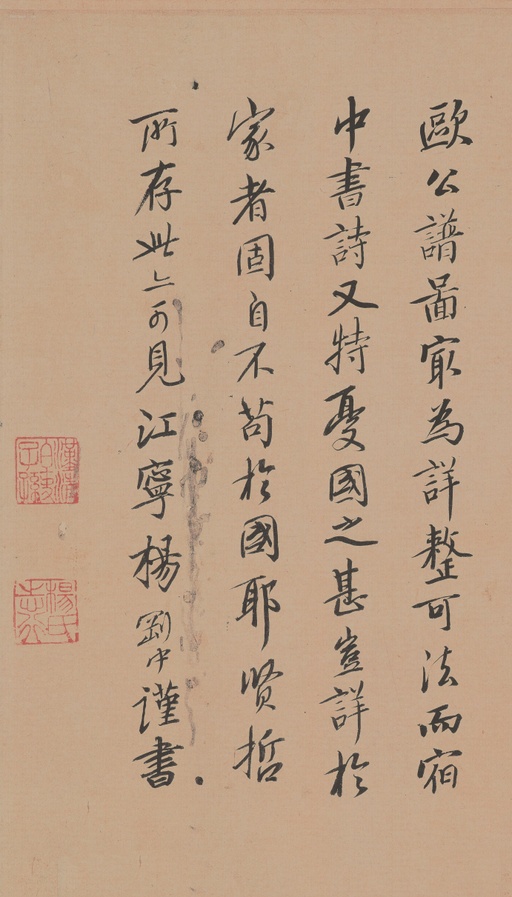 歐公譜啚冣為詳整可法而宿
中書詩又特憂國之甚豈詳於
家者固自不苟於國耶賢哲
所存此亦可見江寧楊剛中謹書
楊氏志行